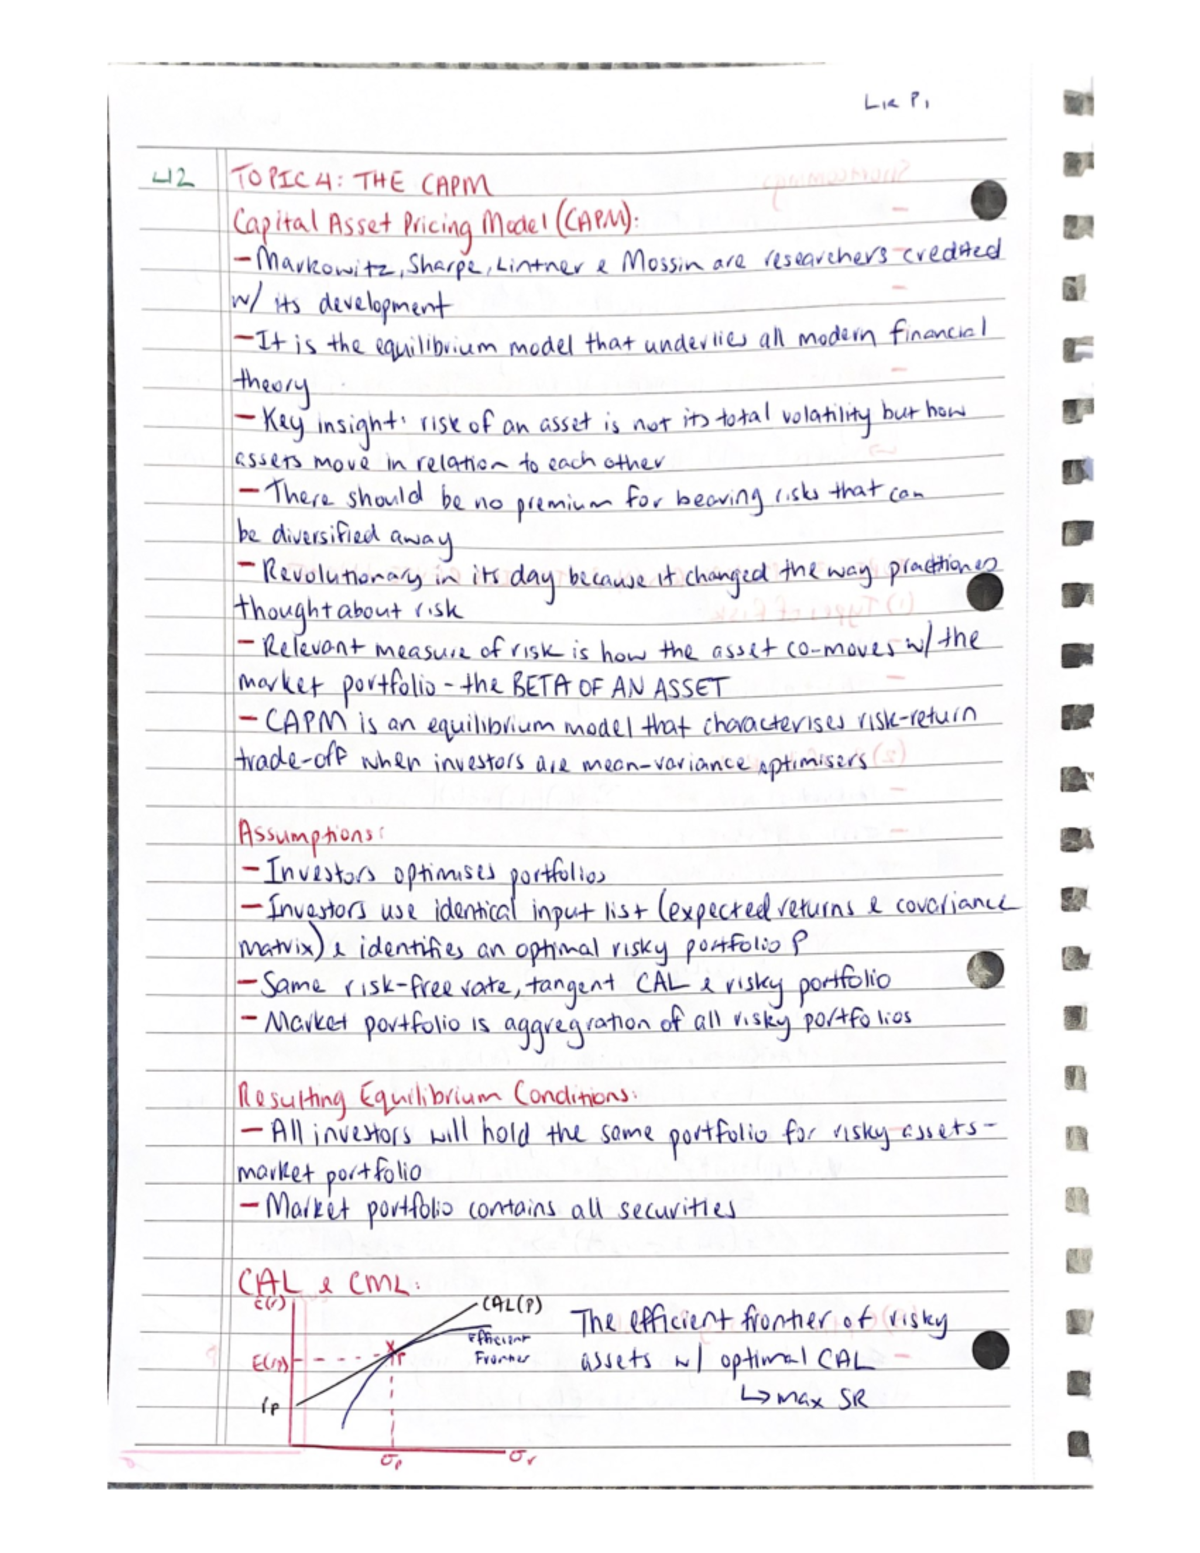 L12 P1
42
TOPIC 4: THE CAPM
Capital Asset Pricing Model (CAPM):
- Markowitz, Sharpe, Lintner & Mossin are researchers credited
w/ its development
- It is the equilibrium model that underlies all modern financial
theory
- Key insight: risk of an asset is not its total volatility but how
assets move in relation to each other
- There should be no premium for bearing risks that can
be diversified away
- Revolutionary in its day because it changed the way practitioners
thought about risk
- Relevant measure of risk is how the asset co-moves w/ the
market portfolio - the BETA OF AN ASSET
- CAPM is an equilibrium model that characterises risk-return
trade-off when investors are mean-variance optimisers
Assumptions:
- Investors optimises portfolios
- Investors use identical input list (expected returns & covariance
matrix) & identifies an optimal risky portfolio P
- Same risk-free rate, tangent CAL & risky portfolio
- Market portfolio is aggregration of all risky portfolios
Resulting Equilibrium Conditions:
- All investors will hold the same portfolio for risky assets -
market portfolio
- Market portfolio contains all securities
CAL & CML:
E(r)
CAL(P)
Efficient
Frontier
E(rp)
σp
σr
The efficient frontier of risky
assets w/ optimal CAL
↳ max SR